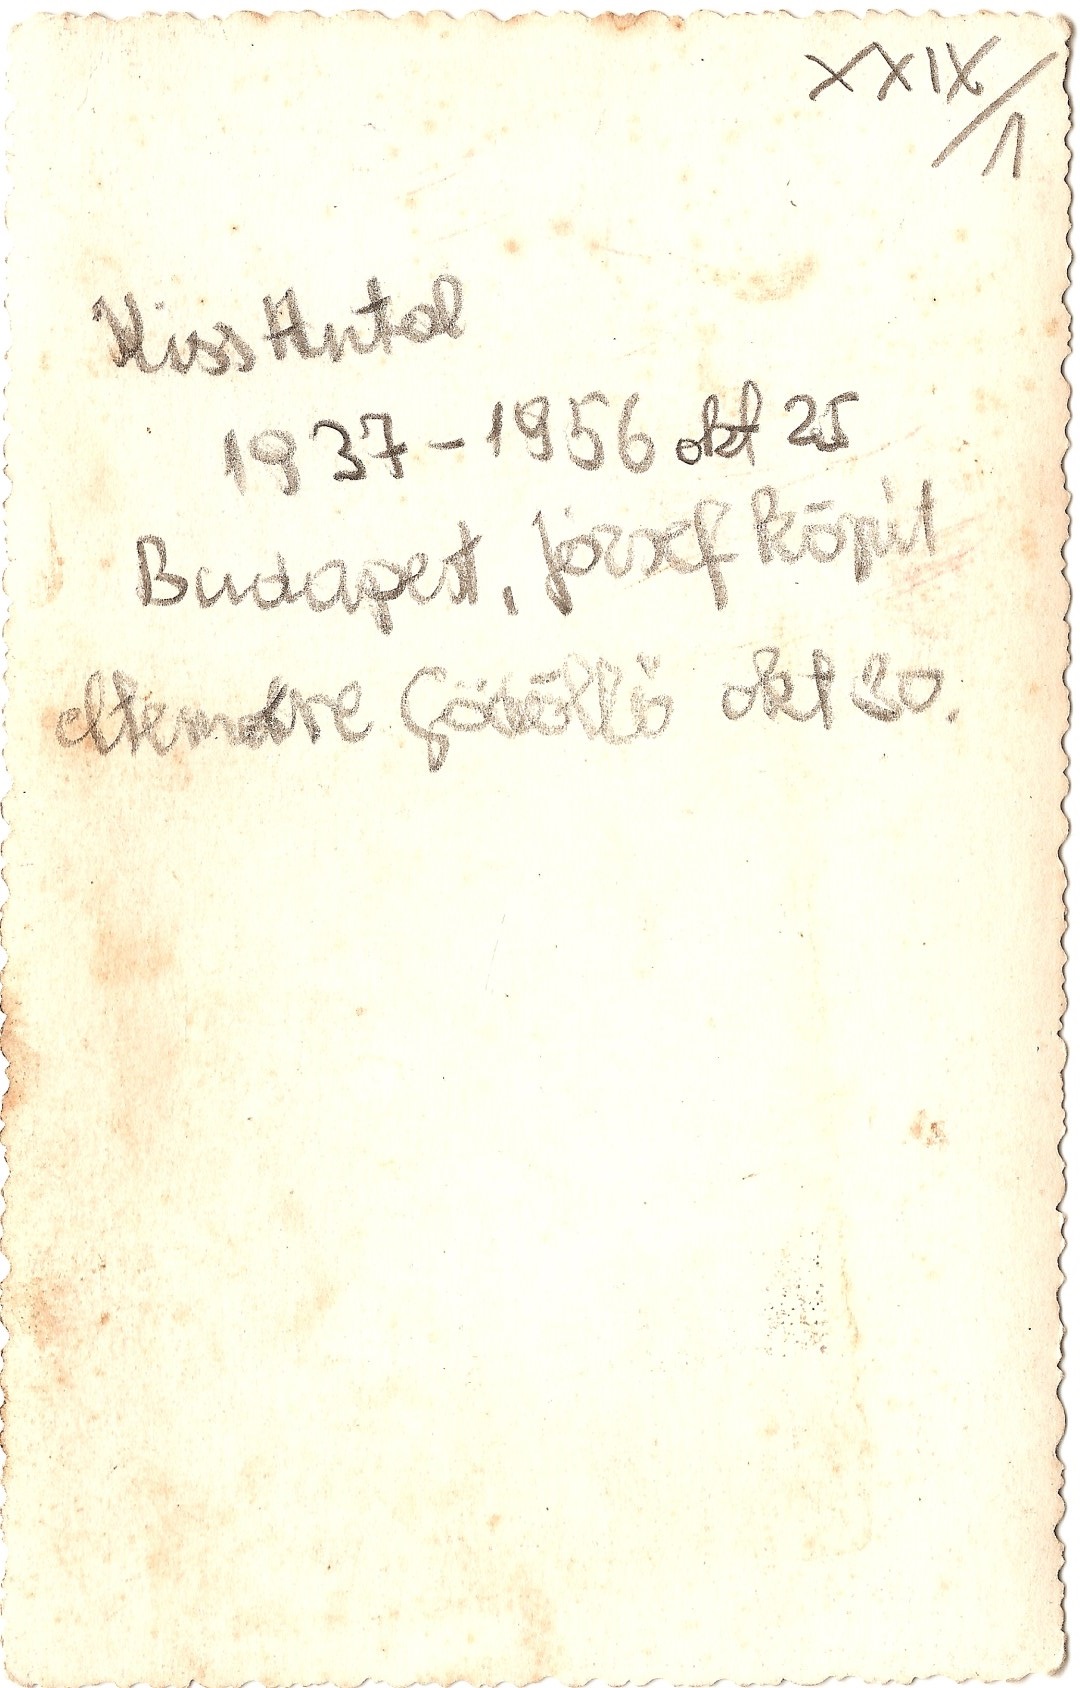 XXIX/1
Kiss Antal
1937-1956 okt 25
Budapest, József körút
eltemetve Gödöllő okt 30.